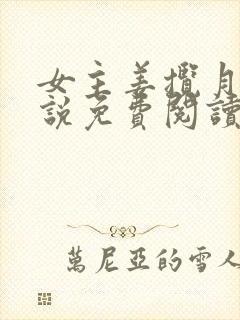 女主姜攬月
說免費閱讀
萬尼亞的雪人